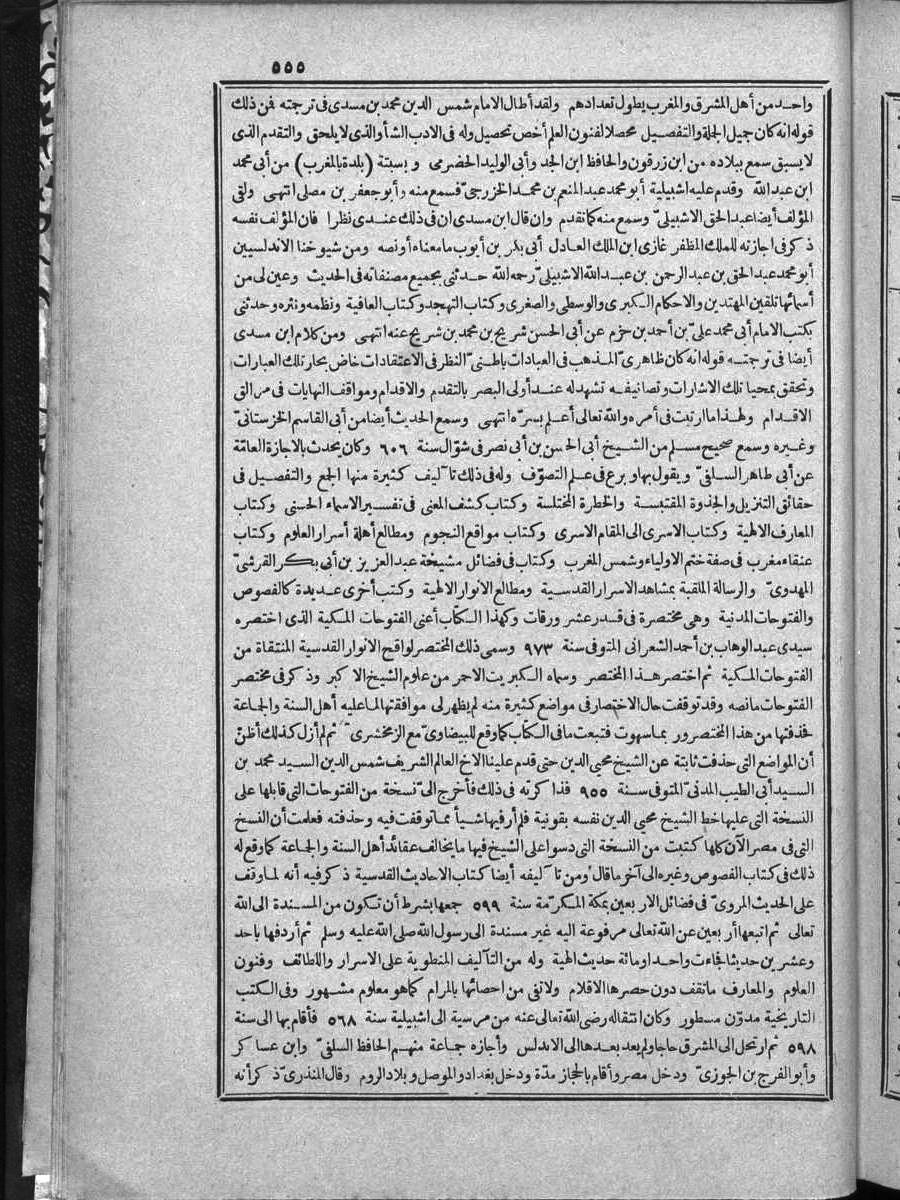 ٥٥٥
واحد من أهل المشرق والمغرب يطول تعدادهم ولقد أطال الامام شمس الدين محمد بن مسدى فى ترجمته فمن ذلك
قوله انه كان جميل الجملة والتفصيل محصلا لفنون العلم أخص تحصيل وله فى الادب الشأو الذى لا يلحق والتقدم الذى
لا يسبق سمع ببلاده من ابن زرقون والحافظ ابن الجد وأبى الوليد الحضرمى وبسبتة (بلدة بالمغرب) من أبى محمد
ابن عبد الله وقدم عليه اشبيلية أبو محمد عبد المنعم بن محمد الخزرجىّ فسمع منه وأبو جعفر بن مصلى انتهى ولقى
المؤلف أيضا عبد الحق الاشبيلىّ وسمع منه كما تقدم وان قال ابن مسدى ان فى ذلك عندى نظرا فان المؤلف نفسه
ذكر فى اجازته للملك المظفر غازى ابن الملك العادل أبى بكر بن أيوب ما معناه أو نصه ومن شيوخنا الاندلسيين
أبو محمد عبد الحق بن عبد الرحمن بن عبد الله الاشبيلىّ رحمه الله حدثنى بجميع مصنفاته فى الحديث وعين لى من
أسمائها تلقين المهتدين والاحكام الكبرى والوسطى والصغرى وكتاب التهجد وكتاب العافية ونظمه ونثره وحدثنى
بكتب الامام أبى محمد علىّ بن أحمد بن حزم عن أبى الحسن شريح بن محمد بن شريح عنه انتهى ومن كلام ابن مسدى
أيضا فى ترجمته قوله انه كان ظاهرىّ المذهب فى العبادات باطنىّ النظر فى الاعتقادات خاض بحار تلك العبارات
وتحقق بمحيا تلك الاشارات وتصانيفه تشهد له عند أولى البصر بالتقدم والاقدام ومواقف النهايات فى مزالق
الاقدام ولهذا ما ارتبت فى أمره والله تعالى أعلم بسرّه انتهى وسمع الحديث أيضا من أبى القاسم الخزستانىّ
وغيره وسمع صحيح مسلم من الشيخ أبى الحسن بن أبى نصر فى شوّال سنة ٦٠٦ وكان يحدث بالاجازة العامّة
عن أبى طاهر السلفىّ ويقول بها وبرع فى علم التصوّف وله فى ذلك تآليف كثيرة منها الجمع والتفصيل فى
حقائق التنزيل والجذوة المقتبسة والخطرة المختلسة وكتاب كشف المعنى فى تفسير الاسماء الحسنى وكتاب
المعارف الالهية وكتاب الاسرى الى المقام الاسرى وكتاب مواقع النجوم ومطالع أهلة أسرار العلوم وكتاب
عنقاء مغرب فى صفة ختم الاولياء وشمس المغرب وكتاب فى فضائل مشيخة عبد العزيز بن أبى بكر القرشىّ
المهدوىّ والرسالة الملقبة بمشاهد الاسرار القدسية ومطالع الانوار الالهية وكتب أخرى عديدة كالفصوص
والفتوحات المدنية وهى مختصرة فى قدر عشر ورقات وكهذا الكتاب أعنى الفتوحات المكية الذى اختصره
سيدى عبد الوهاب بن أحمد الشعرانى المتوفى سنة ٩٧٣ وسمى ذلك المختصر لواقح الانوار القدسية المنتقاة من
الفتوحات المكية ثم اختصر هذا المختصر وسماه الكبريت الاحمر من علوم الشيخ الاكبر وذكر فى مختصر
الفتوحات مانصه وقد توقفت حال الاختصار فى مواضع كثيرة منه لم يظهر لى موافقتها لما عليه أهل السنة والجماعة
فحذفتها من هذا المختصر وربما سهوت فتبعت ما فى الكتاب كما وقع للبيضاوىّ مع الزمخشرىّ ثم لم أزل كذلك أظنّ
أن المواضع التى حذفت ثابتة عن الشيخ محيى الدين حتى قدم علينا الاخ العالم الشريف شمس الدين السيد محمد بن
السيد أبى الطيب المدنىّ المتوفى سنة ٩٥٥ فذاكرته فى ذلك فأخرج الىّ نسخة من الفتوحات التى قابلها على
النسخة التى عليها خط الشيخ محيى الدين نفسه بقونية فلم أر فيها شيأ مما توقفت فيه وحذفته فعلمت أن النسخ
التى فى مصر الآن كلها كتبت من النسخة التى دسوا على الشيخ فيها ما يخالف عقائد أهل السنة والجماعة كما وقع له
ذلك فى كتاب الفصوص وغيره الى آخر ما قال ومن تآليفه أيضا كتاب الاحاديث القدسية ذكر فيه أنه لما وقف
على الحديث المروىّ فى فضائل الاربعين بمكة المكرّمة سنة ٥٩٩ جمعها بشرط أن تكون من المسندة الى الله
تعالى ثم اتبعها أربعين عن الله تعالى مرفوعة اليه غير مسندة الى رسول الله صلى الله عليه وسلم ثم أردفها باحد
وعشرين حديثا فجاءت واحدا ومائة حديث الهية وله من التآليف المنطوية على الاسرار واللطائف وفنون
العلوم والمعارف ما تقف دون حصرها الاقلام ولا تفى من احصائها بالمرام كما هو معلوم مشهور وفى الكتب
التاريخية مدوّن مسطور وكان انتقاله رضى الله تعالى عنه من مرسية الى اشبيلية سنة ٥٦٨ فأقام بها الى سنة
٥٩٨ ثم ارتحل الى المشرق حاجا ولم يعد بعدها الى الاندلس وأجازه جماعة منهم الحافظ السلفىّ وابن عساكر
وأبو الفرج بن الجوزىّ ودخل مصر وأقام بالحجاز مدّة ودخل بغداد والموصل وبلاد الروم وقال المنذرىّ ذكر أنه